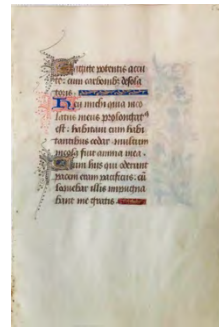 Sagitte potentis accu
te: cum carbonib9 desola
toriis.
Heu michi quia inco
latus meus prolongatꝰ
est: habitaui cum habi
tantibus cedar· multum
incola fuit anima mea.
Cum hiis qui oderunt
pacem eram pacificus: cū
loquebar illis impugna
bant me gratis.